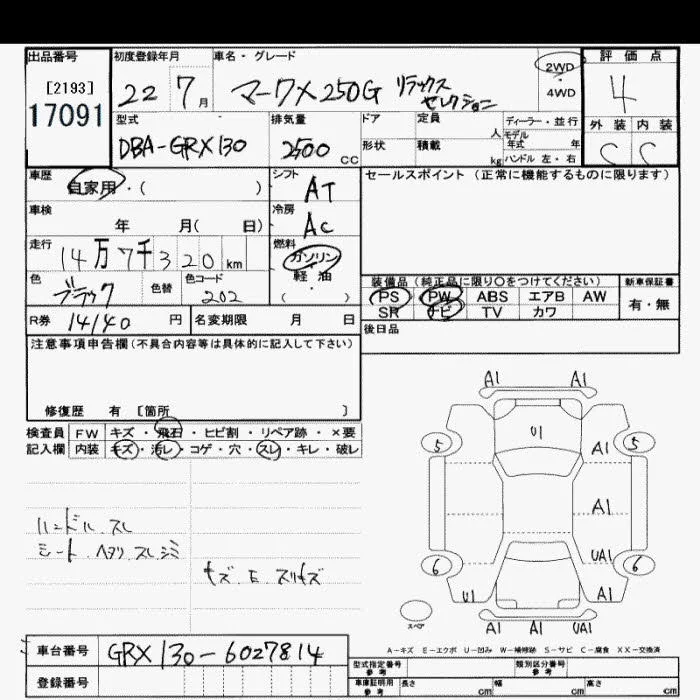 出品番号 初度登録年月 車名・グレード 評価点
[2193]
17091
22 7月 マークX 250G リラックスセレクション
2WD
・
4WD
4
型式 排気量 ドア 定員 人 ディーラー・並行 外装 内装
DBA-GRX130 2500 CC
形状 積載 kg モデル年式 年 ハンドル 左・右
C C
車歴 自家用・( ) シフト AT
セールスポイント(正常に機能するものに限ります)
車検 年 月( 日) 冷房 AC
走行 14万7千320km 燃料 ガソリン・軽油 ( )
色 ブラック 色替 色コード 202
装備品(純正品に限り○をつけてください) 新車保証書
PS PW ABS エアB AW 有・無
SR ナビ TV カワ
R券 14140円 名変期限 月 日
後日品
注意事項申告欄(不具合内容等は具体的に記入して下さい)
修復歴 有 [箇所 ]
検査員記入欄
FW キズ・飛石・ヒビ割・リペア跡・×要
内装 キズ・汚レ・コゲ・穴・スレ・キレ・破レ
A1 A1
U1
5 5
A1
A1
6 6
UA1
U1 A1
スペア
A1 A1 UA1
ハンドル スレ
シート ヘタリ スレ シミ
キズ
A-キズ E-エクボ U-凹み W-補修跡 S-サビ C-腐食 XX-交換済
車台番号 GRX130-6027814
登録番号
型式指定番号 参考 類別区分番号 参考
車庫証明用 参考 長さ cm 幅 cm 高さ cm